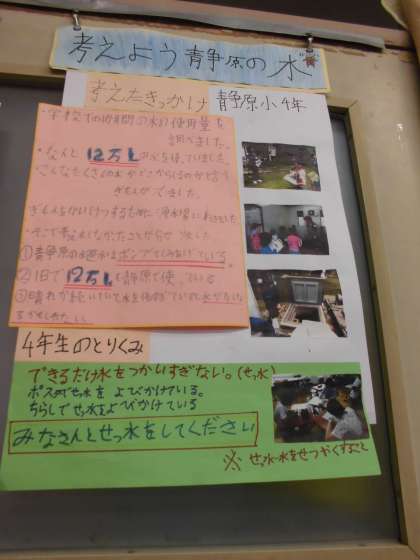 考えよう静原の水
考えたきっかけ
静原小4年
学校で
間の水の使用量を
調べました。
・なんと12万Lの水を使っていました。
こんなたくさんの水がどこからくるのかと言う
ぎもんがでました。
ぎもんをかいけつするために浄水場に
・そこで
①静原の水道水はポンプでくみあげている。
②1日で12万Lも静原で使っている
③晴れが続いていて水を
水がない
4年生のとりくみ
できるだけ水をつかいすぎない。(せっ水)
ポスターでせっ水をよびかけている。
ちらしでせっ水をよびかけている
みなさんとせっ水をしてください
※せっ水・水をせつやくすること